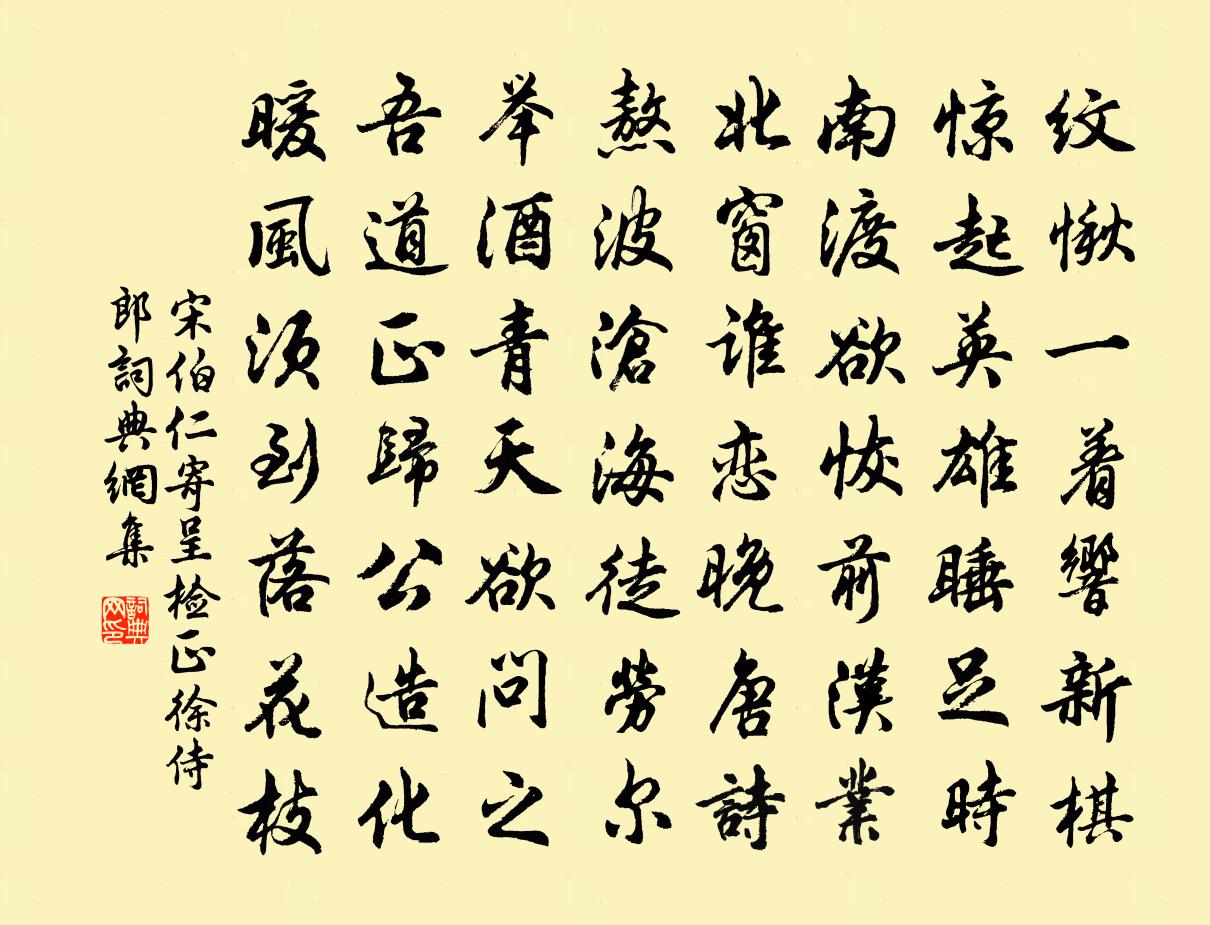 纹愀一着響新棋
惊起英雄睡足時
南渡欲恢前漢業
北窗谁恋晚唐詩
熬波滄海徒勞尔
举酒青天欲问之
吾道正歸公造化
暖風须到落花枝
宋伯仁寄呈检正徐侍
郎詞典網集
詞典网印